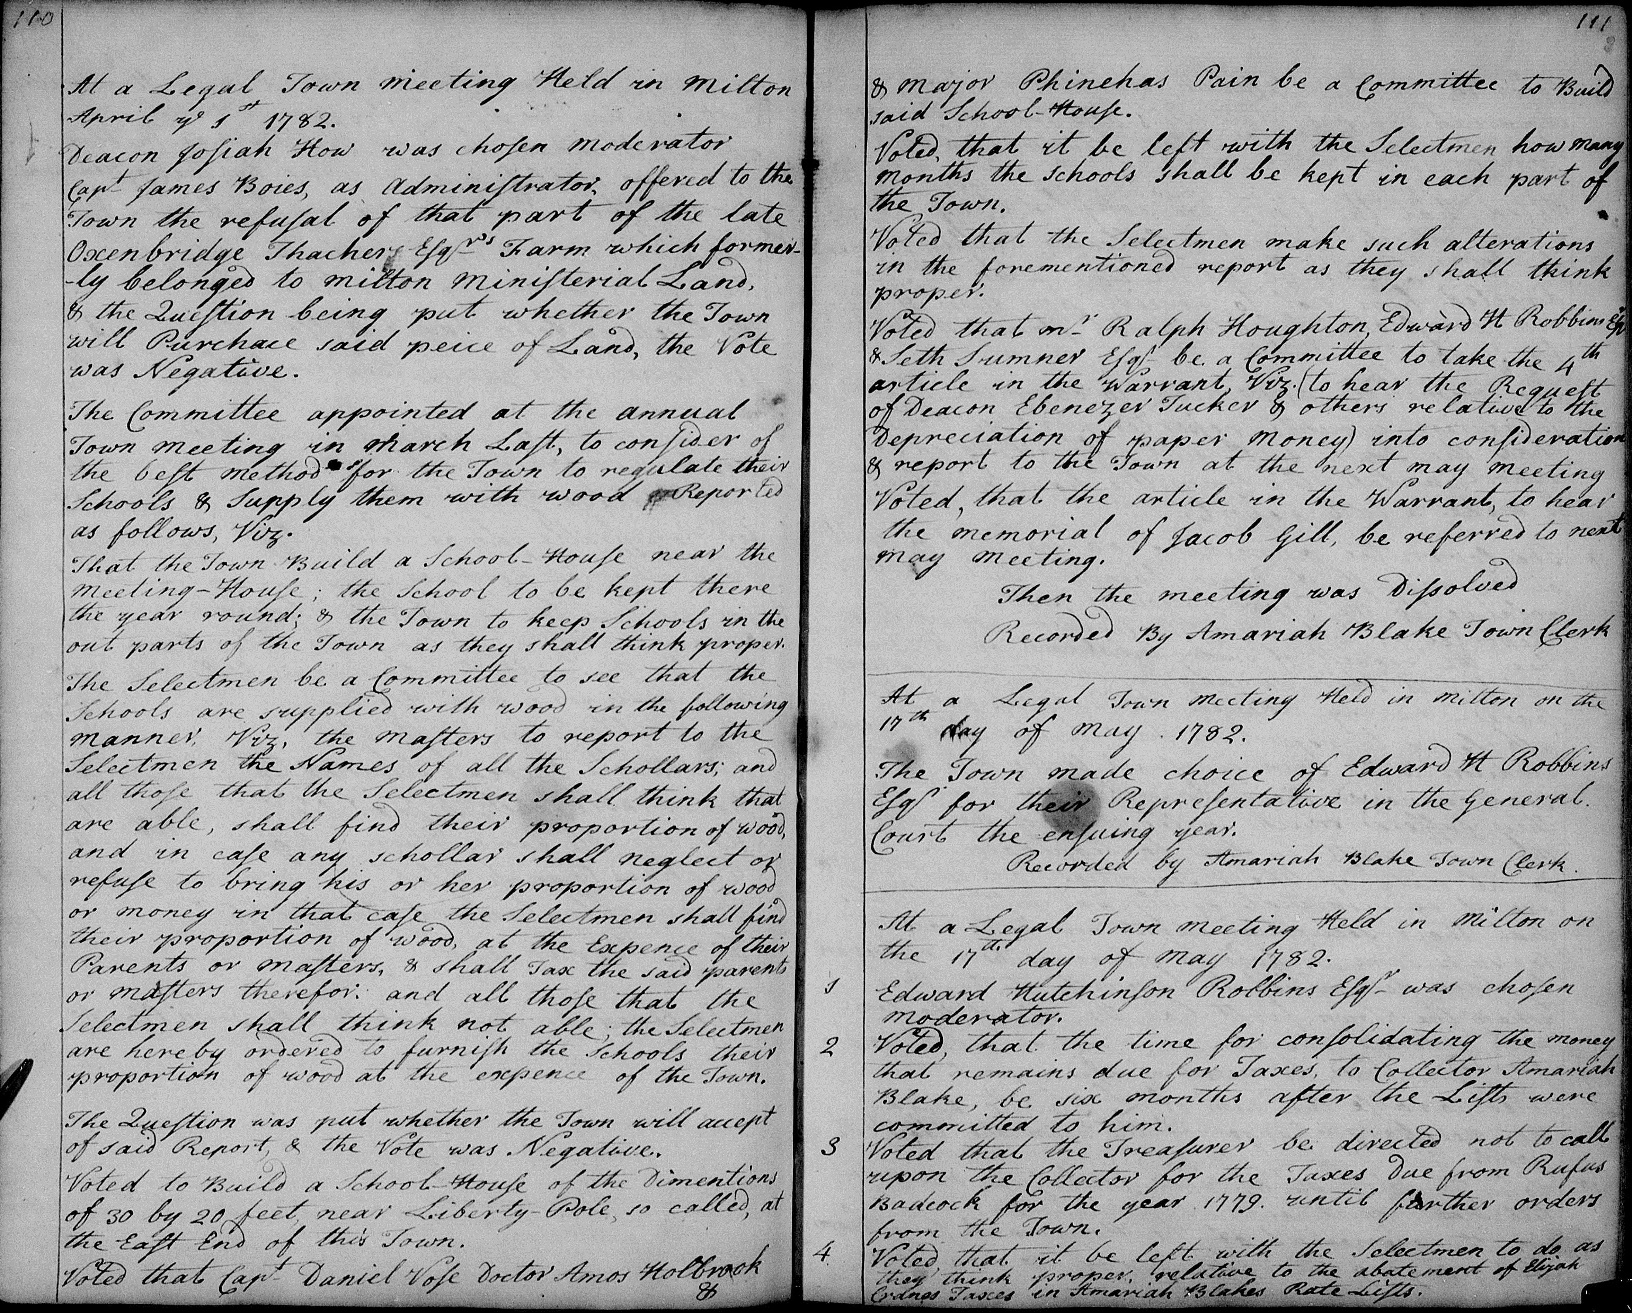 110
At a Legal Town meeting Held in Milton
April ye 1st 1782.
Deacon Joſiah How was choſen moderator
Capt James Boies, as Adminiſtrator, offered to the
Town the refuſal of that part of the late
Oxenbridge Thacher Eſqrs Farm which former-
-ly belonged to Milton Miniſterial Land,
& the Queſtion being put whether the Town
will Purchace said peice of Land, the Vote
was Negative.
The Committee appointed at the annual
Town meeting in March Laſt, to conſider of
the beſt method for the Town to regulate their
Schools & Supply them with wood Reported
as follows, Viz.
That the Town Build a School-Houſe near the
meeting-Houſe; the School to be kept there
the year round; & the Town to keep Schools in the
out parts of the Town as they shall think proper.
The Selectmen be a Committee to see that the
Schools are supplied with wood in the following
manner, Viz, the maſters to report to the
Selectmen the Names of all the Schollars; and
all thoſe that the Selectmen shall think that
are able, shall find their proportion of wood,
and in caſe any schollar shall neglect or
refuſe to bring his or her proportion of wood
or money in that caſe the Selectmen shall find
their proportion of wood, at the Expence of their
Parents or maſters, & shall Tax the said parents
or maſters therefor: and all thoſe that the
Selectmen shall think not able; the Selectmen
are hereby ordered to furniſh the Schools their
proportion of wood at the expence of the Town.
The Queſtion was put whether the Town will accept
of said Report, & the Vote was Negative.
Voted to Build a School-Houſe of the Dimentions
of 30 by 20 feet, near Liberty-Pole, so called, at
the Eaſt End of this Town.
Voted that Capt Daniel Voſe Doctor Amos Holbrook
&
111
& major Phinehas Pain be a Committee to Build
said School-Houſe.
Voted, that it be left with the Selectmen how many
months the schools shall be kept in each part of
the Town.
Voted that the Selectmen make such alterations
in the forementioned report as they shall think
proper.
Voted that mr Ralph Houghton, Edward H Robbins Eſqr
& Seth Sumner Eſqr be a Committee to take the 4th
article in the Warrant, Viz. (to hear the Requeſt
of Deacon Ebenezer Tucker & others relative to the
Depreciation of paper money) into conſideration
& report to the Town at the next may meeting
Voted, that the article in the Warrant, to hear
the memorial of Jacob Gill, be referred to next
may meeting.
Then the meeting was Diſsolved
Recorded By Amariah Blake Town Clerk
At a Legal Town meeting Held in milton on the
17th day of may 1782.
The Town made choice of Edward H Robbins
Eſqr for their Repreſentative in the General
Court the enſuing year.
Recorded by Amariah Blake Town Clerk.
At a Legal Town meeting Held in Milton on
the 17th day of may 1782.
1 Edward Hutchinſon Robbins Eſqr was choſen
moderator.
2 Voted, that the time for conſolidating the money
that remains due for Taxes, to Collector Amariah
Blake, be six months after the Liſts were
committed to him.
3 Voted that the Treaſurer be directed not to call
upon the Collector for the Taxes Due from Rufus
Badcock for the year 1779. until further orders
from the Town.
4 Voted, that it be left with the Selectmen to do as
they think proper, relative to the abatement of Elijah
Cranes Taxes in Amariah Blakes Rate Liſts.